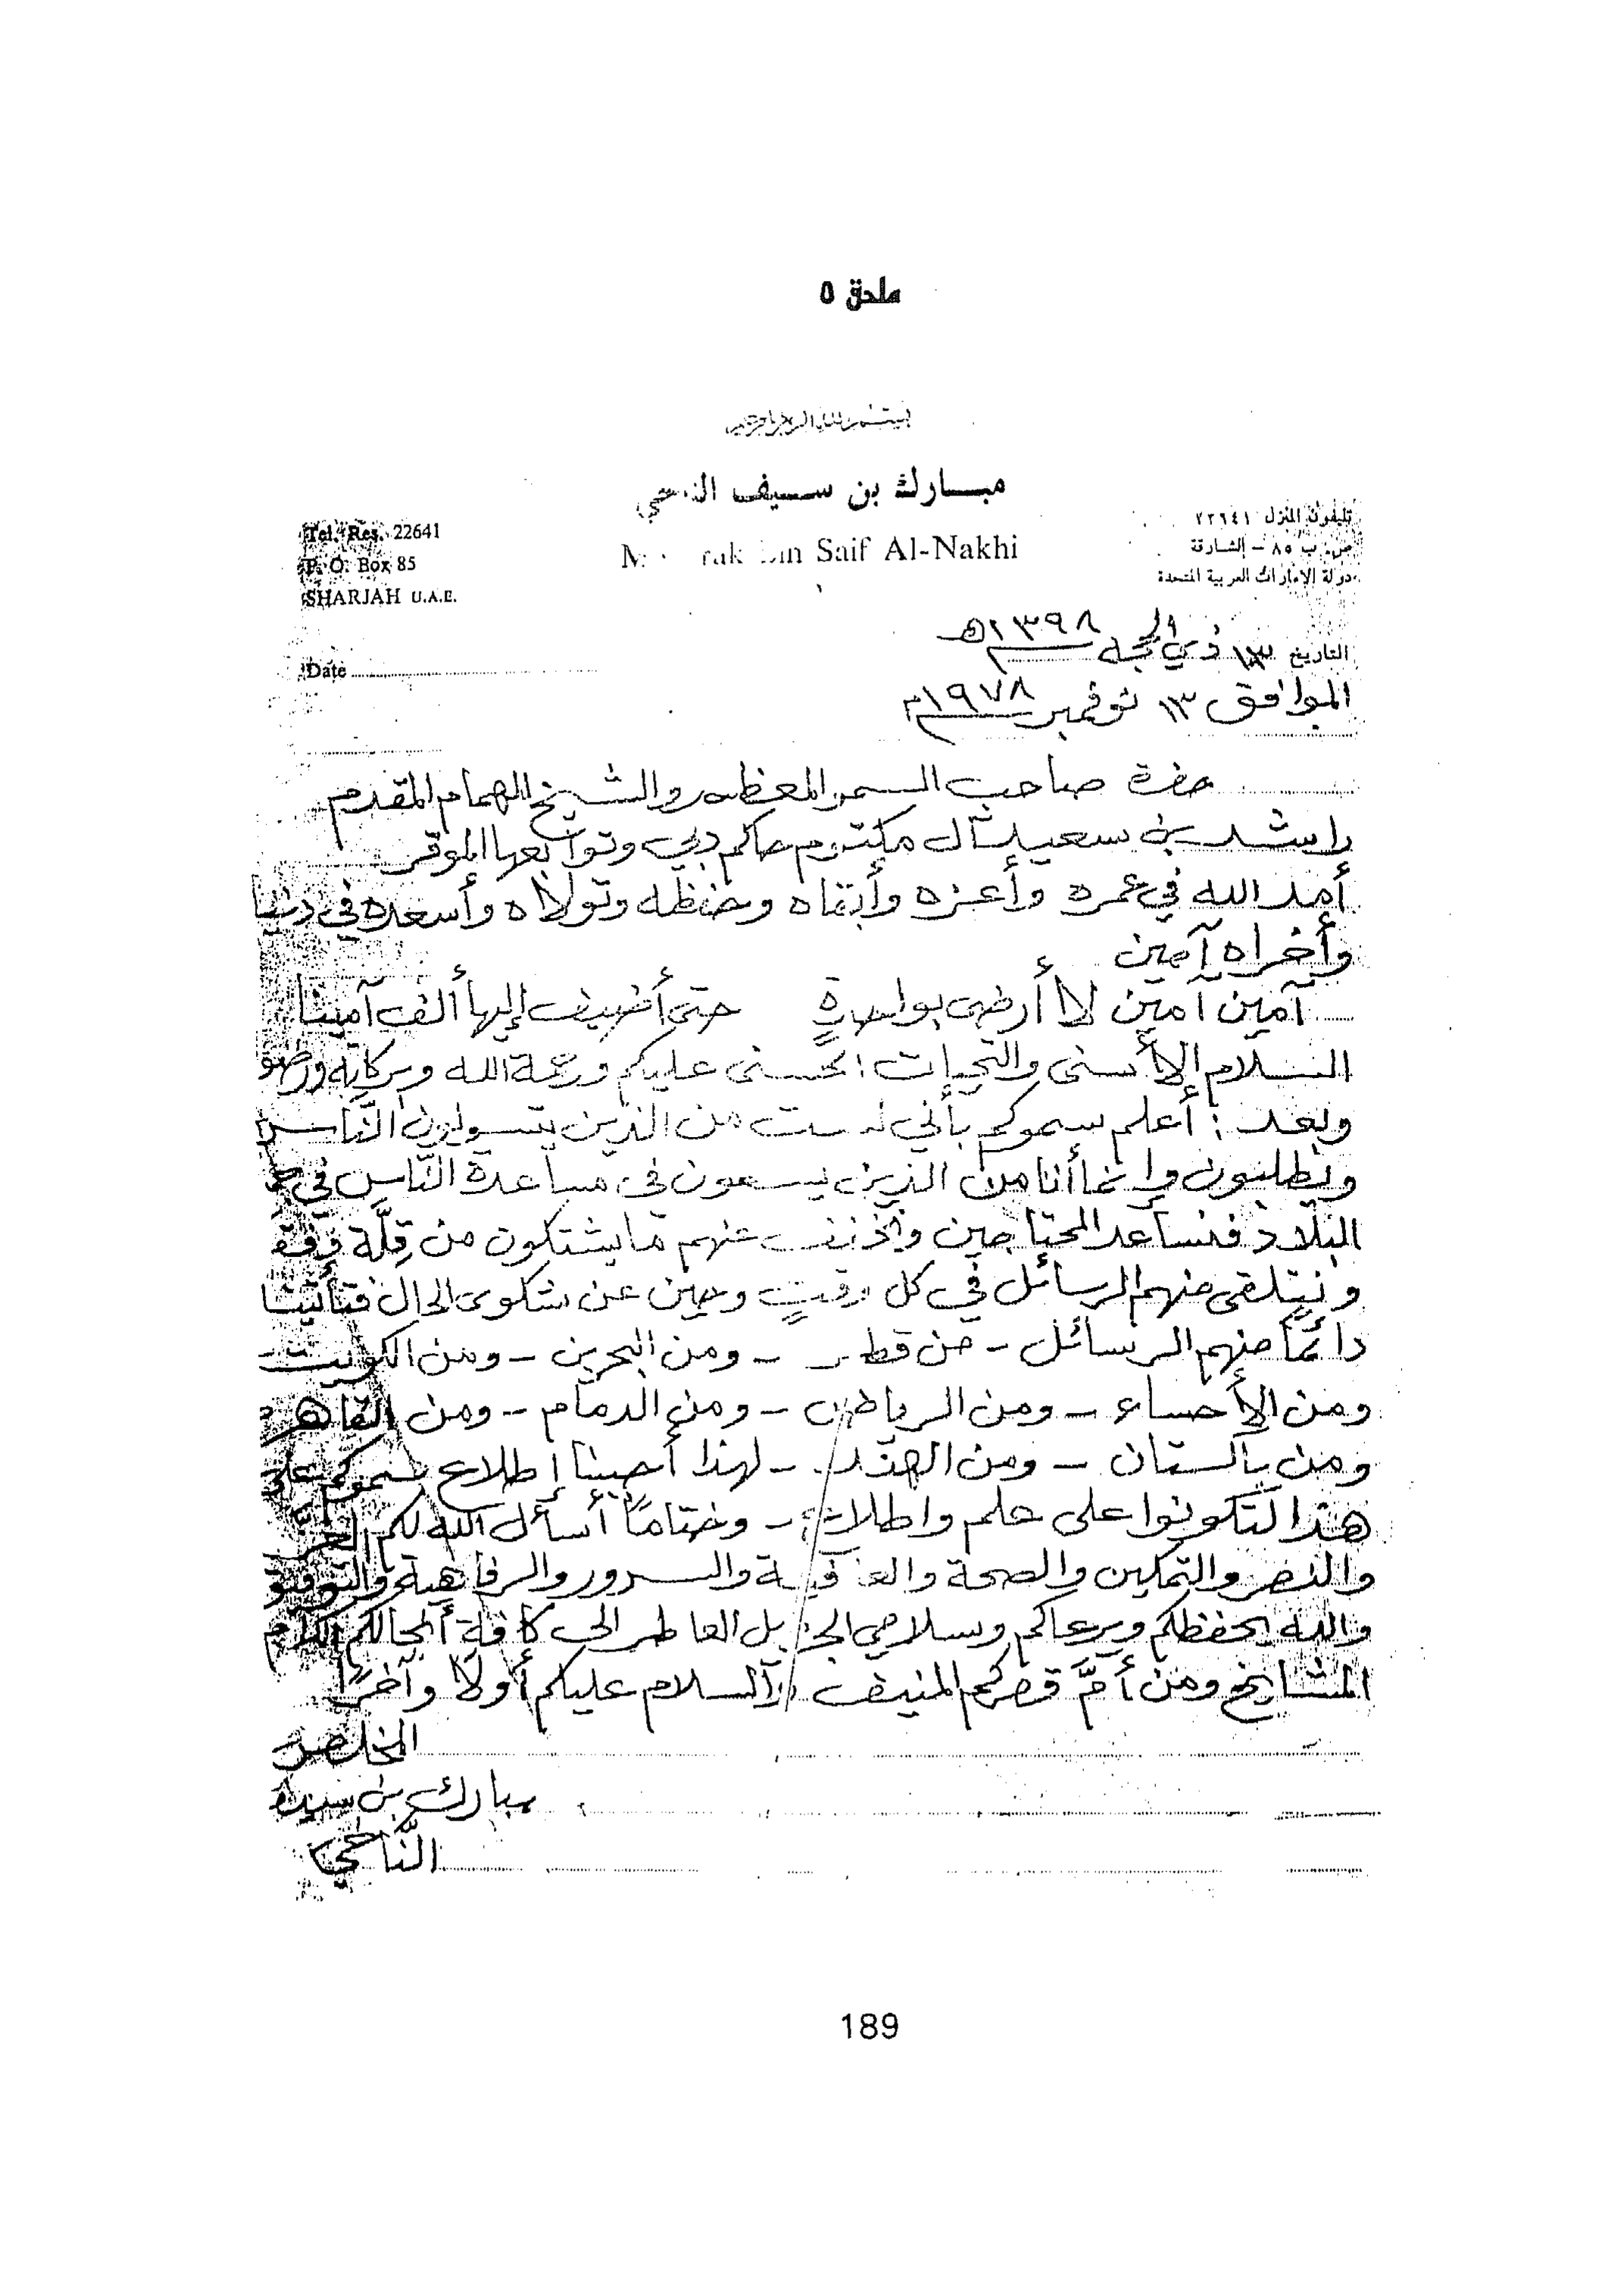 ملحق ٥
بسم الله الرحمن الرحيم
مبارك بن سيف
Saif Al-Nakhi
Tel. Res. 22641
P. O. Box 85
SHARJAH U.A.E.
تليفون المنزل ٢٢٦٤١
ص. ب ٨٥ - الشارقة
دولة الإمارات العربية المتحدة
التاريخ ١٣ ذي الحجه ١٣٩٨هـ
Date
الموافق ١٣ نوفمبر ١٩٧٨م
حضرة صاحب السمو المعظم والشيخ الهمام المقدم
راشد بن سعيد آل مكتوم حاكم دبي وتوابعها الموقر
أمد الله في عمره وأعزه وأبقاه وحفظه وتولاه وأسعده في دنيا
وأخراه آمين
آمين آمين لا أرضى بواحدةٍ حتى أضيف إليها ألف آمينا
السلام الأسنى والتحيات الحسنى عليكم ورحمة الله وبركاته
وبعد : أعلم سموكم بأني لست من الذين يتسولون النّاس
ويطلبون وإنما أنا من الذين يسعون في مساعدة النّاس في
البلاد فنساعد المحتاجين عنهم ما يشتكون من قِلَّة
ونتلقى منهم الرسائل في كل وقتٍ وحين عن شكوى الحال فتأتينا
دائمًا منهم الرسائل - من قطر - ومن البحرين - ومن الكويت
ومن الأحساء - ومن الرياض - ومن الدمام - ومن القاهرة
ومن باكستان - ومن الهند - لهذا أحببنا إطلاع سموكم على
هذا لتكونوا على علم واطلاع - وختامًا أسأل الله لكم العز
والنصر والتمكين والصحة والعافية والسرور والرفاهية والتوفيق
والله يحفظكم ويرعاكم وسلامي الجزيل العاطر الى كافة أنجالكم الكرام
المشايخ ومن أمَّ قصركم المنيف والسلام عليكم أولًا وآخرًا
المخلص
مبارك بن سيف
النّاخي
189